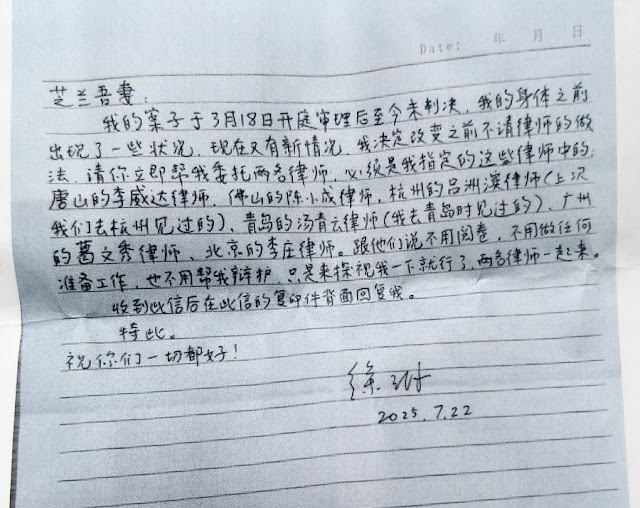 Date: 年 月 日
芝兰吾妻：
我的案子于3月18日开庭审理后至今未判决，我的身体之前
出现了一些状况，现在又有新情况，我决定改变之前不请律师的做
法，请你立即帮我委托两名律师，必须是我指定的这些律师中的：
唐山的李威达律师、佛山的陈小成律师、杭州的吕洲滨律师（上次
我们去杭州见过的）、青岛的汤青云律师（我去青岛时见过的）、广州
的葛文秀律师、北京的李庄律师。跟他们说不用阅卷，不用做任何
准备工作，也不用帮我辩护，只是来探视我一下就行了，两名律师一起来。
收到此信后在此信的复印件背面回复我。
特此。
祝你们一切都好！
徐
2025.7.22